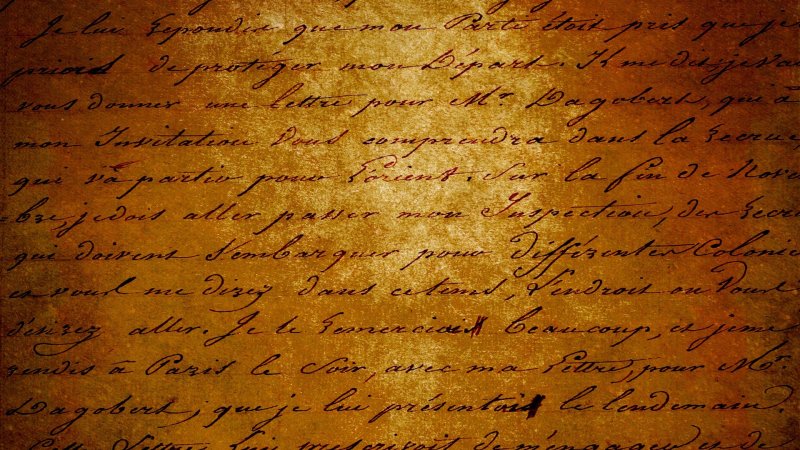 Je lui repondis que mon Parti étoit pris que je
priois de protéger mon Départ. Il me dit, je vai
vous donner une lettre pour Mr. Dagobert, qui à
mon Invitation vous comprendra dans la recrue,
qui va partir pour Lorient. Sur la fin de Nove
bre, je dois aller passer mon Inspection, des recru
qui doivent s'embarquer pour différentes Colonie
et vous me direz dans ce tems, l'endroit ou vous
désirez aller. Je le remerciois beaucoup, et je me
rendis à Paris le Soir, avec ma Lettre, pour Mr.
Dagobert, que je lui présentois le lendemain.
Cette Lettre lui prescrivoit de ménager et de